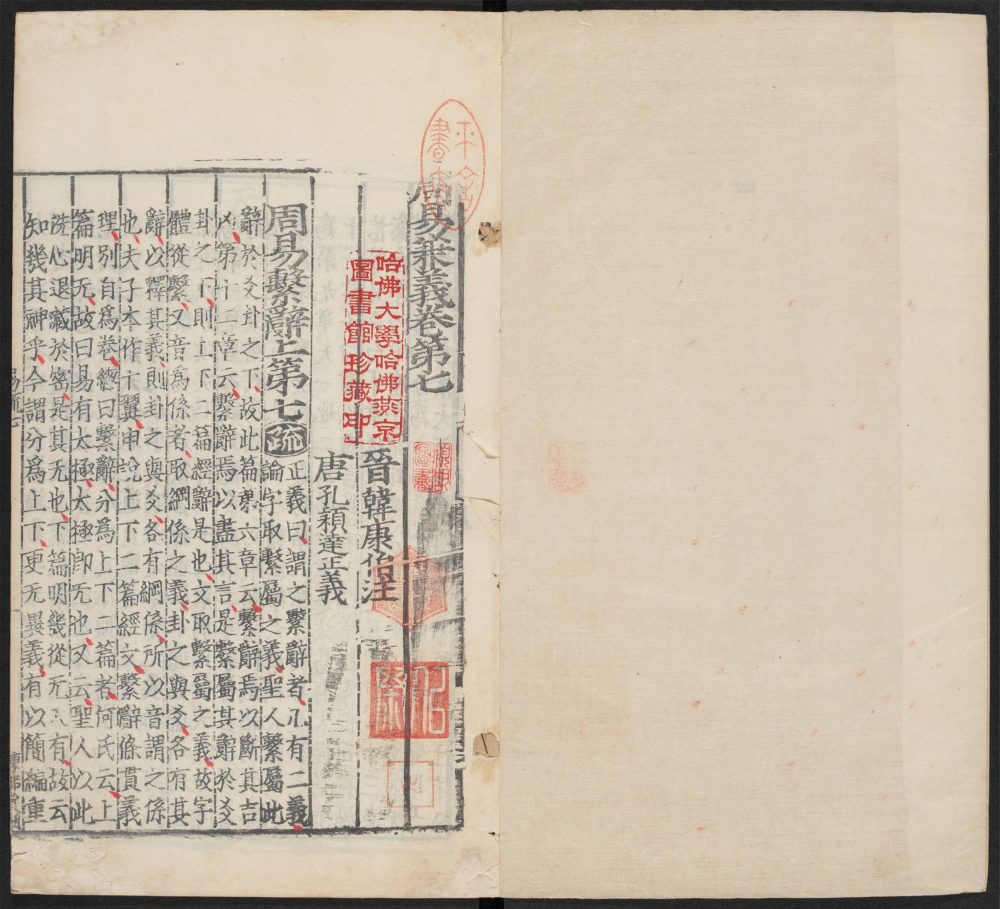 周易兼義卷第七
晉韓康伯注
唐孔穎達正義
周易繫辭上第七 疏 正義曰謂之繫辭者凡有二義
論字取繫屬之義聖人繫屬此
辭於爻卦之下故此篇第六章云繫辭焉以斷其吉
凶第十二章云繫辭焉以盡其言是繫屬其辭於爻
卦之下則上下二篇經辭是也文取繫屬之義故字
體從繫又音為係者取綱係之義卦之與爻各有其
辭以釋其義則卦之與爻各有綱係所以音謂之係
也夫子本作十翼申說上下二篇經文繫辭條貫義
理別自為卷緫曰繫辭分為上下二篇者何氏云上
篇明无故曰易有太極太極即无也又云聖人以此
洗心退藏於密是其无也下篇明幾從无入有故云
知幾其神乎今謂分為上下更无異義有以簡編重
哈佛大學哈佛燕京
圖書館珍藏印